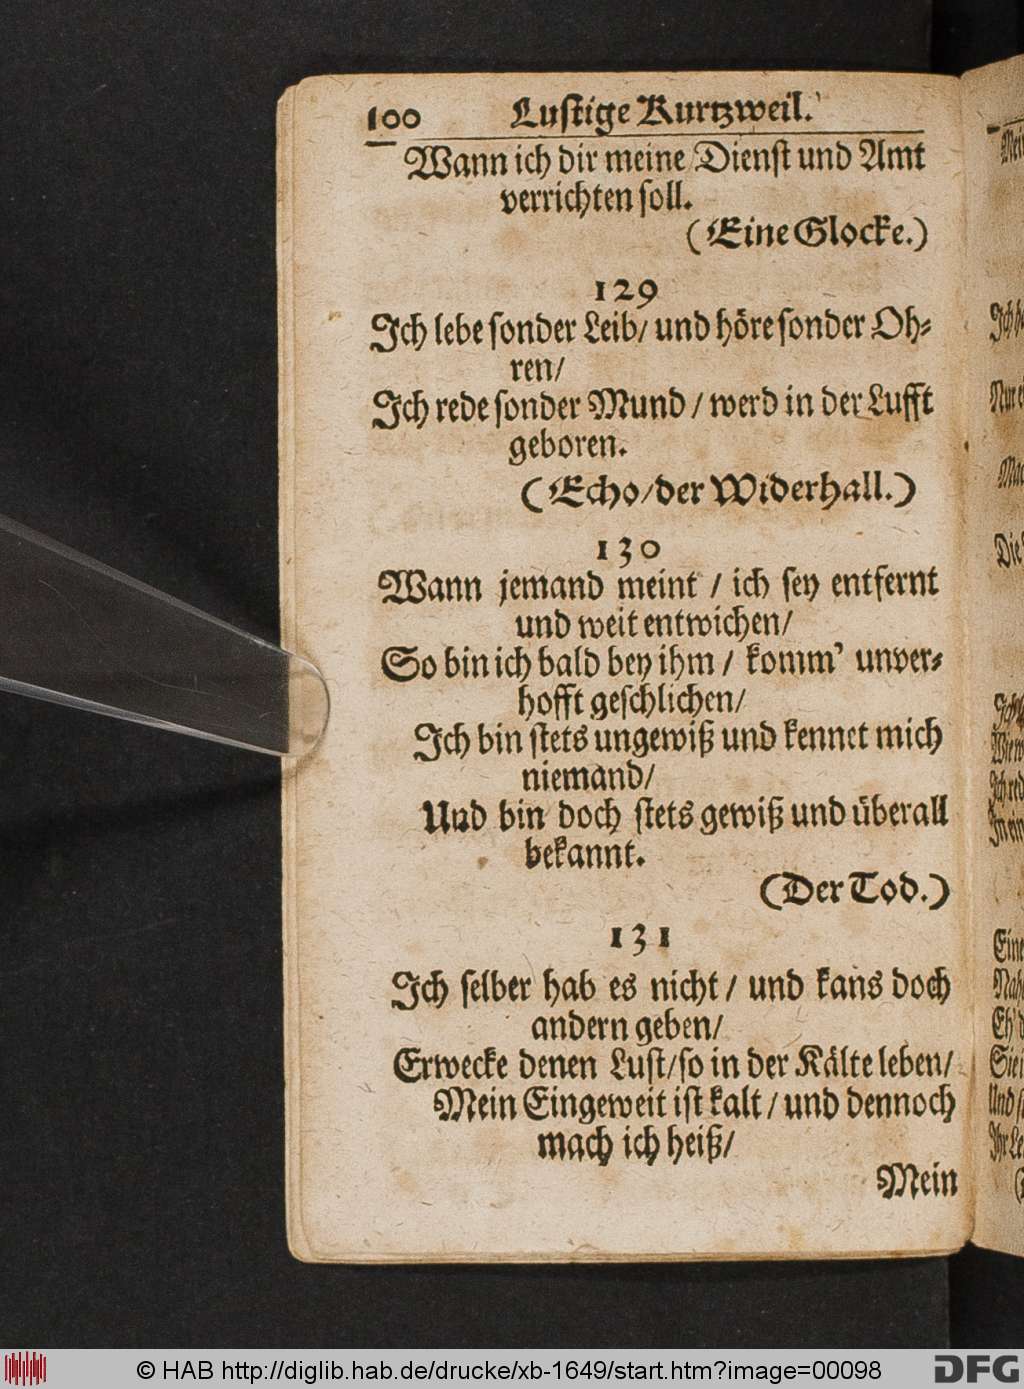 100 Lustige Kurtzweil.
Wann ich dir meine Dienst und Amt
verrichten soll.
(Eine Glocke.)
129
Ich lebe sonder Leib/ und höre sonder Oh-
ren/
Ich rede sonder Mund / werd in der Lufft
geboren.
(Echo/der Widerhall.)
130
Wann jemand meint / ich sey entfernt
und weit entwichen/
So bin ich bald bey ihm / komm' unver-
hofft geschlichen/
Ich bin stets ungewiß und kennet mich
niemand/
Und bin doch stets gewiß und überall
bekannt.
(Der Tod.)
131
Ich selber hab es nicht / und kans doch
andern geben/
Erwecke denen Lust/so in der Kälte leben/
Mein Eingeweit ist kalt / und dennoch
mach ich heiß/
Mein
© HAB http://diglib.hab.de/drucke/xb-1649/start.htm?image=00098
DFG